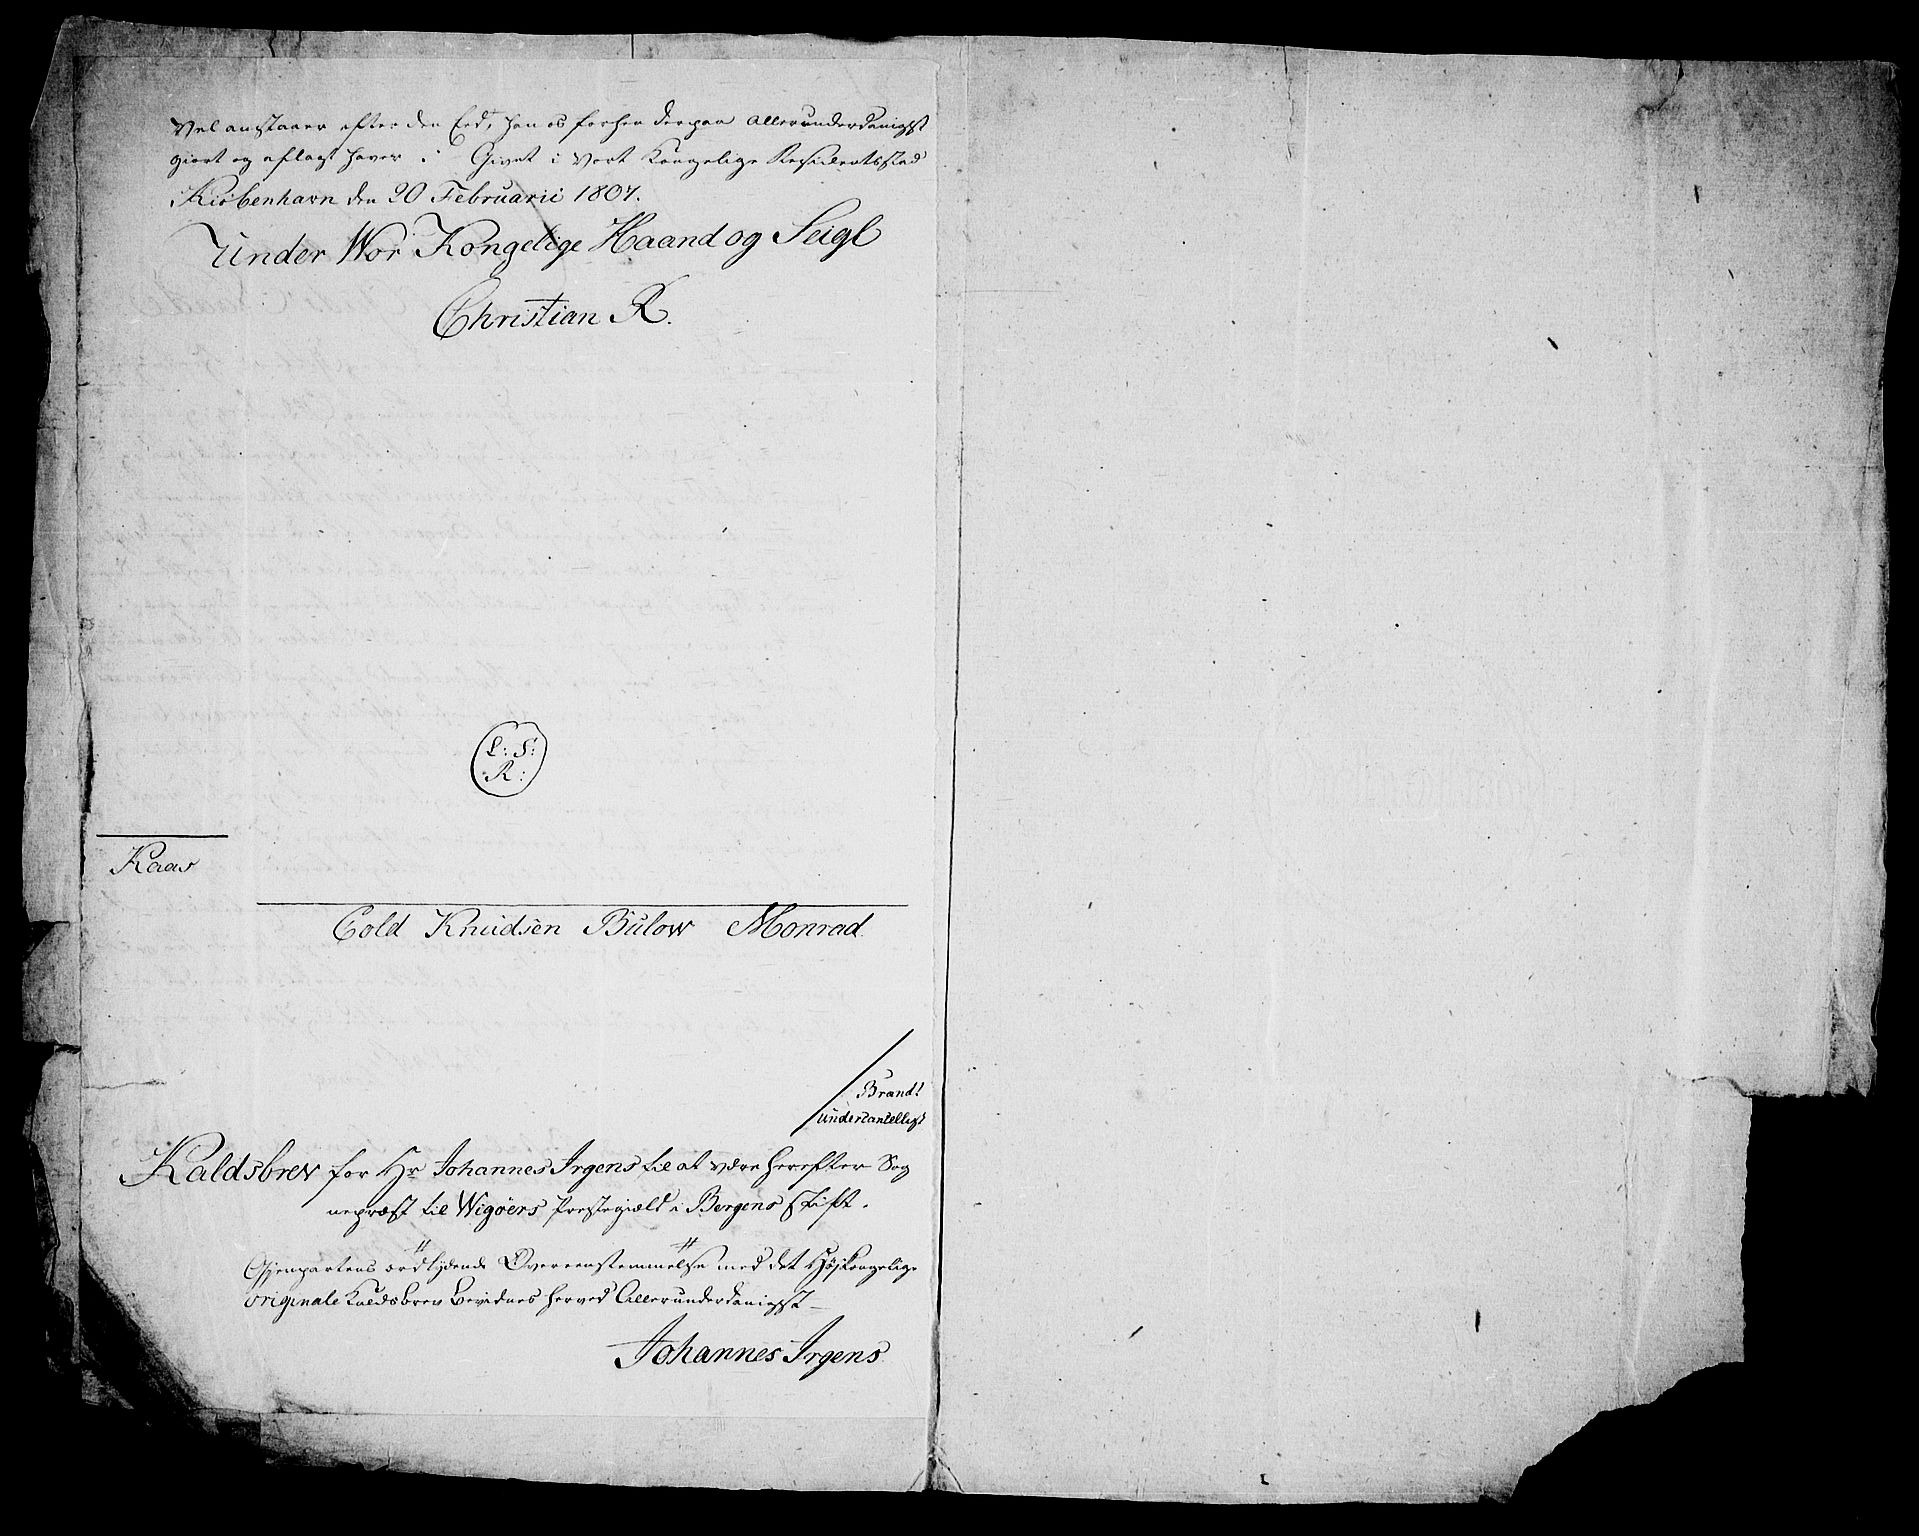 Vel anstaaer efter den Eed, han os forhen derpaa allerunderdanigst
giort og aflagt haver. Givet i Vort Kongelige Residentsstad
Kiöbenhavn den 20 Februarii 1807.
Under Wor Kongelige Haand og Seigl
Christian R.
L: S:
R:
Kaas
Cold Knudsen Bülow Monrad
Brandt
undercancelligt
Kaldsbrev for Hr Johannes Irgens til at være herefter Sog
nepræst til Wigöers Prestegiæld i Bergens Stift.
Gjenpartens ordlydende Overeenstemmelse med det Højkongelige
originale Kaldsbrev bevidnes herved Allerunderdanigst
Johannes Irgens